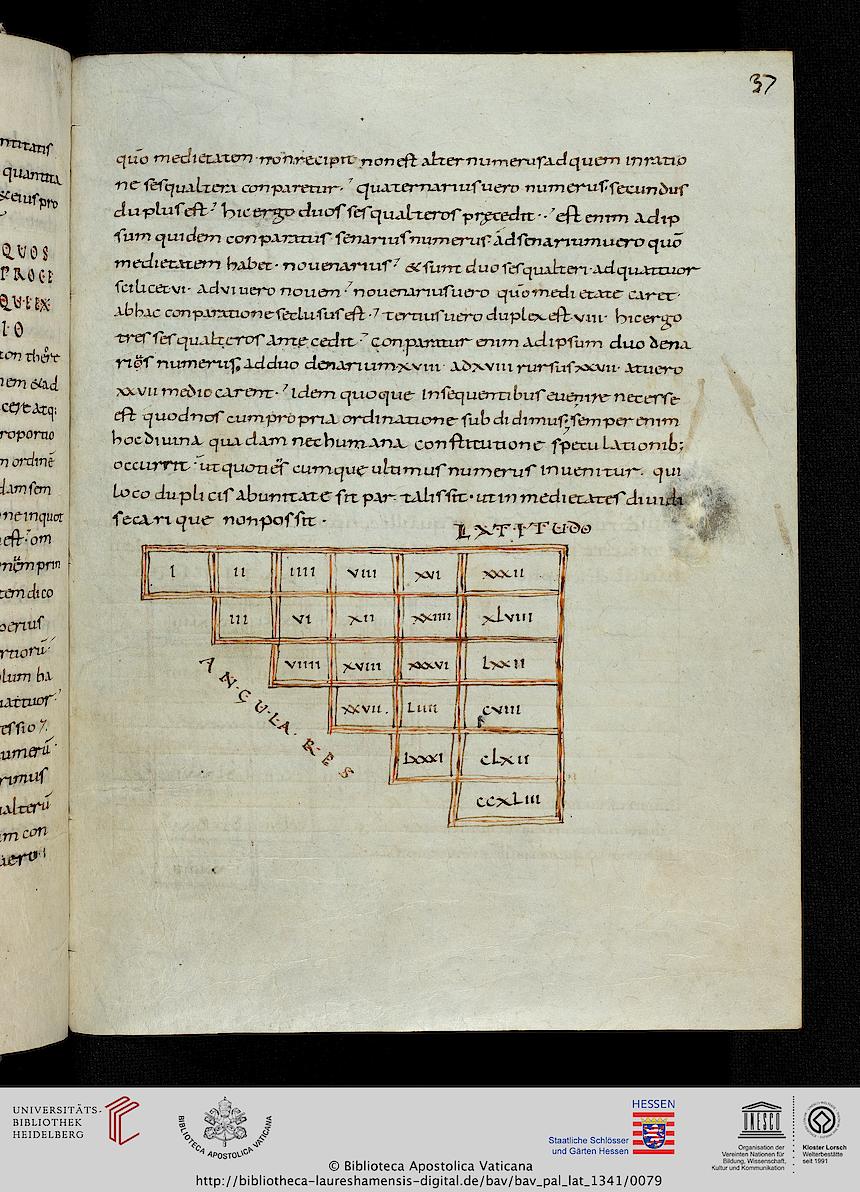 37
ntitatis
quantita
&eiuspro
QUOS
PROCE
QUEEX
LO
nem &ad
cere atq;
roportio
m ordinē
damsem
ne inquot
est om
tem dico
perius
lum ba
uattuor
essio
numerū
rimus
ualterū
im con
uero
quō medietatem non recipit non est alter numerus ad quem in ratio
ne sesqualtera conparetur. quaternarius uero numerus secundus
duplus est hic ergo duos sesqualteros pręcedit. est enim adip
sum quidem conparatus senarius numerus. ad senarium uero quō
medietatem habet. nouenarius & sunt duo sesqualteri. ad quattuor
scilicet vi. ad vi uero nouem nouenarius uero quō medietate caret.
ab hac conparatione seclusus est tertius uero duplex est viii. hic ergo
tres sesqualteros antecedit Conparatur enim adipsum duodena
rius numerus ad duodenarium xviii. ad xviii rursus xxvii. at uero
xxvii medio carent. Idem quoque in sequentibus euenire necesse
est quod nos cum propria ordinatione subdidimus. semper enim
hoc diuina quadam nec humana constitutione speculationib;
occurrit. ut quotiēs cumque ultimus numerus inuenitur. qui
loco duplicis ab unitate sit par. talis sit. ut in medietates diuidi
secarique non possit.
LATITUDO
I II IIII VIII XVI XXXII
III VI XII XXIIII XLVIII
VIIII XVIII XXXVI LXXII
XXVII. LIIII CVIII
LXXXI CLXII
CCXLIII
ANGULARES
UNIVERSITÄTS-
BIBLIOTHEK
HEIDELBERG
BIBLIOTECA APOSTOLICA VATICANA
HESSEN
Staatliche Schlösser
und Gärten Hessen
UNESCO
Organisation der
Vereinten Nationen für
Bildung, Wissenschaft,
Kultur und Kommunikation
Kloster Lorsch
Welterbestätte
seit 1991
© Biblioteca Apostolica Vaticana
http://bibliotheca-laureshamensis-digital.de/bav/bav_pal_lat_1341/0079